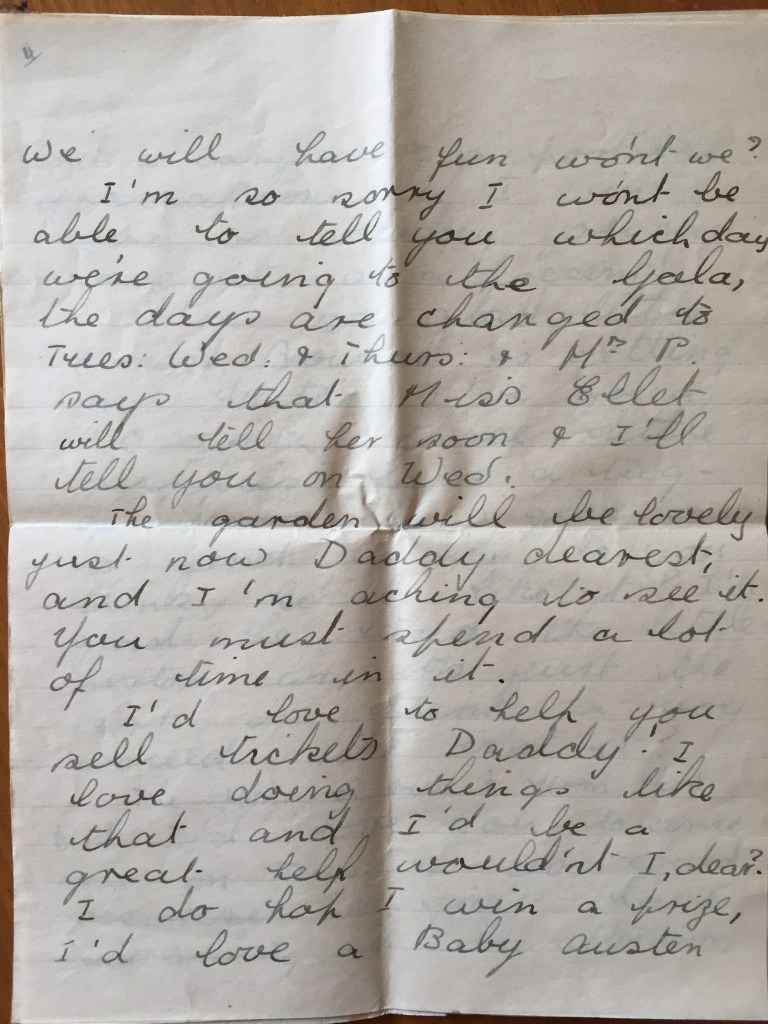 4/
We will have fun wo'nt we?
I'm so sorry I wo'nt be
able to tell you which day
we're going to the Gala,
the days are changed to
Tues: Wed: & Thurs: & Mrs P.
says that Miss Ellet
will tell her soon & I'll
tell you on Wed.
The garden will be lovely
just now Daddy dearest,
and I'm aching to see it.
You must spend a lot
of time in it.
I'd love to help you
sell tickets Daddy! I
love doing things like
that and I'd be a
great help would'nt I, dear?
I do hop I win a prize,
I'd love a Baby Austen